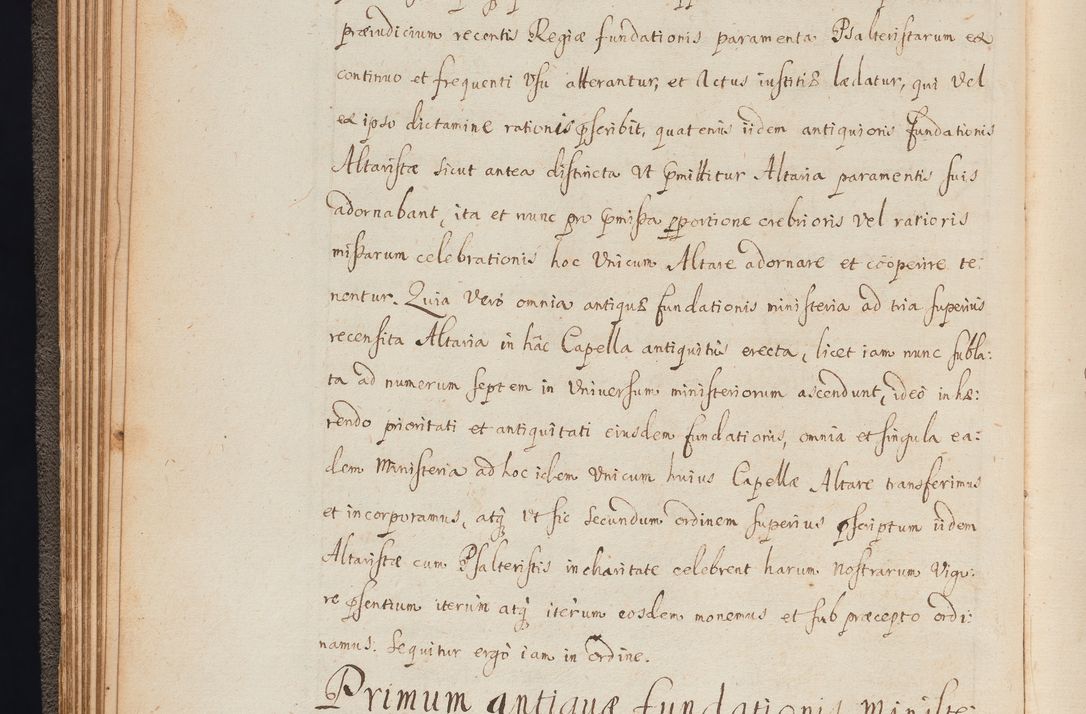 præiudicium recentis Regiæ fundationis paramenta Psalteristarum ex
continuo et frequenti Vsu atterantur, et Actus iustitiæ lædatur, qui Vel
ex ipso dictamine rationis p̃scribit, quatenus iidem antiquioris fundationis
Altaristæ sicut antea distincta Vt p̃mittitur Altaria paramentis suis
adornabant, ita et nunc pro p̃missa ꝓportione crebrioris Vel rarioris
missarum celebrationis hoc Vnicum Altare adornare et cooperire te:
nentur. Quia Verò omnia antiquæ fundationis ministeria ad tria superius
recensita Altaria in hâc Capella antiquitùs erecta, licet iam nunc subla:
ta ad numerum septem in Vniversum ministeriorum ascendunt, ideò inhæ:
rendo prioritati et antiquitati eiusdem fundationis, omnia et singula ea:
dem Ministeria ad hoc idem Vnicum huius Capellæ Altare transferimus
et incorporamus, atq̃ Vt sic secundum ordinem superius p̃scriptum iidem
Altaristæ cum Psalteristis in charitate celebrent harum Nostrarum Vigo:
re p̃sentium iterùm atq̃ iterùm eosdem monemus et sub præcepto ordi:
namus. Sequitur ergò iam in Ordine.
Primum antiquæ fundationis Ministe: